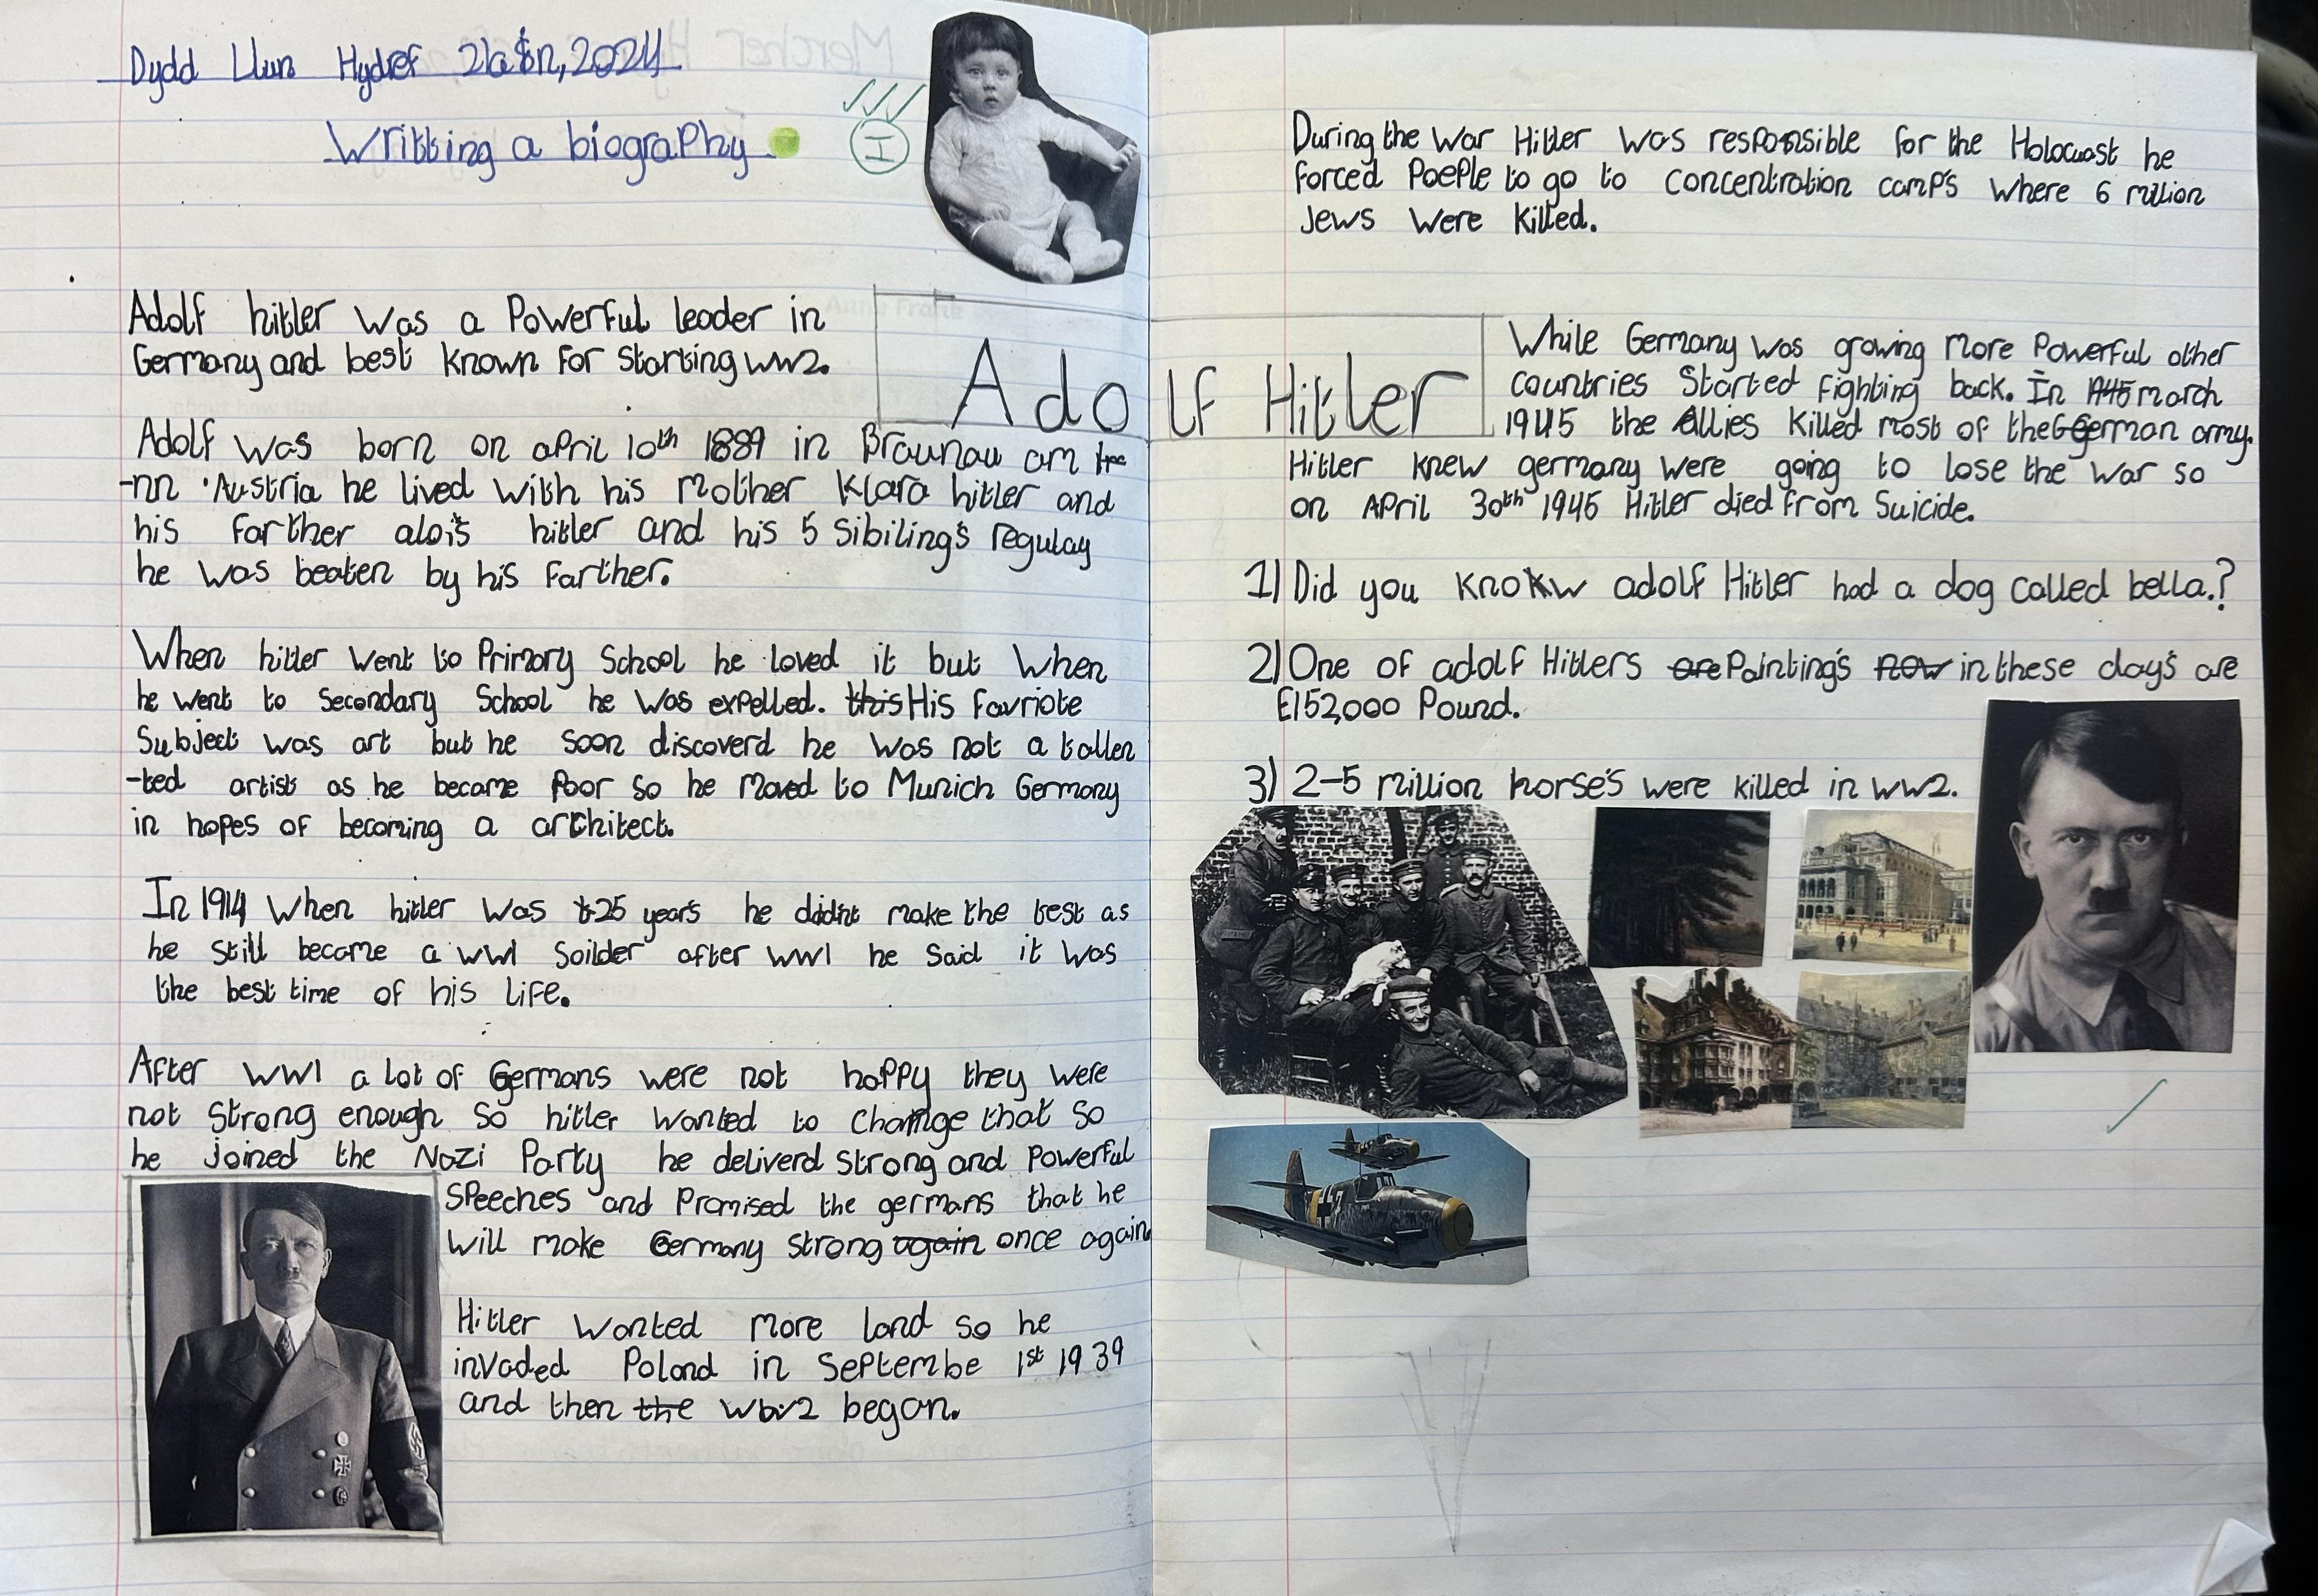 Dydd Llun Hydref 21ain, 2024
Writting a biography
I
Adolf hitler was a Powerful leader in
Germany and best known for starting ww2.
Adolf was born on april 10th 1889 in Braunau am
-nn Austria he lived with his mother Klara hitler and
his farther alois hitler and his 5 sibiling's regulay
he was beaten by his farther.
When hitler went to Primary School he loved it but when
he went to secondary School he was expelled. this His favriote
Subject was art but he soon discoverd he was not a tallen
-ted artist as he became poor so he moved to Munich Germany
in hopes of becoming a architect.
In 1914 when hitler was 25 year's he didnt make the test as
he still became a ww1 Soilder after ww1 he said it was
the best time of his life.
After ww1 a lot of Germans were not happy they were
not strong enough so hitler wanted to change that so
he joined the Nazi Party he deliverd strong and Powerful
speeches and promised the germans that he
will make Germany strong again once again
Hitler wanted more land so he
invaded Poland in septembe 1st 1939
and then the ww2 began.
Adolf Hitler
During the war Hitler was responsible for the Holocuast he
forced PoePle to go to concentration camp's where 6 million
Jews were killed.
While Germany was growing more Powerful other
countries started fighting back. In 1945 march
1945 the Allies killed most of the German army.
Hitler knew germany were going to lose the war so
on April 30th 1945 Hitler died from Suicide.
1) Did you know adolf Hitler had a dog called bella.?
2) One of adolf Hitlers are Painting's now in these day's are
£152,000 Pound.
3) 2-5 million horse's were killed in ww2.